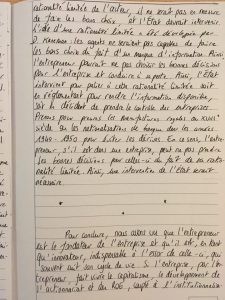 rationalité limitée de l'acteur, il ne serait pas en mesure
de faire les bons choix, et l'Etat devrait intervenir
L'idée d'une rationalité limitée a été développée par
les agents ne seraient pas capables de faire
les bons choix du fait d'un manque d'information. Ainsi
l'entrepreneur pourrait ne pas choisir les bonnes décisions
pour l'entreprise et conduire à sa perte. Ainsi, l'Etat
intervient pour palier à cette rationalité limitée soit
en réglementant pour rendre l'information disponible,
soit il décidait de prendre le contrôle des entreprises.
Prenons pour preuves les manufactures royales au XVIIIe
siècle ou les nationalisations de
1940-1950 pour éviter les dérives. En ce sens, l'entre-
preneur, s'il est dans une entreprise, peut ne pas prendre
les bonnes décisions pour celle-ci du fait de sa ratio-
nalité limitée. Ainsi, une intervention de l'Etat serait
nécessaire.
Pour conclure, nous avons vu que l'entrepreneur
est le fondateur de l'entreprise et qu'il est, en tant
qu'innovateur, indispensable à l'essor de celle-ci,
souvent son cycle de vie. Si l'entrepreneur, par l'en-
trepreneur, fait vivre le capitalisme, le développement de
l'actionnariat et du couplé à l'institutionnalisa-